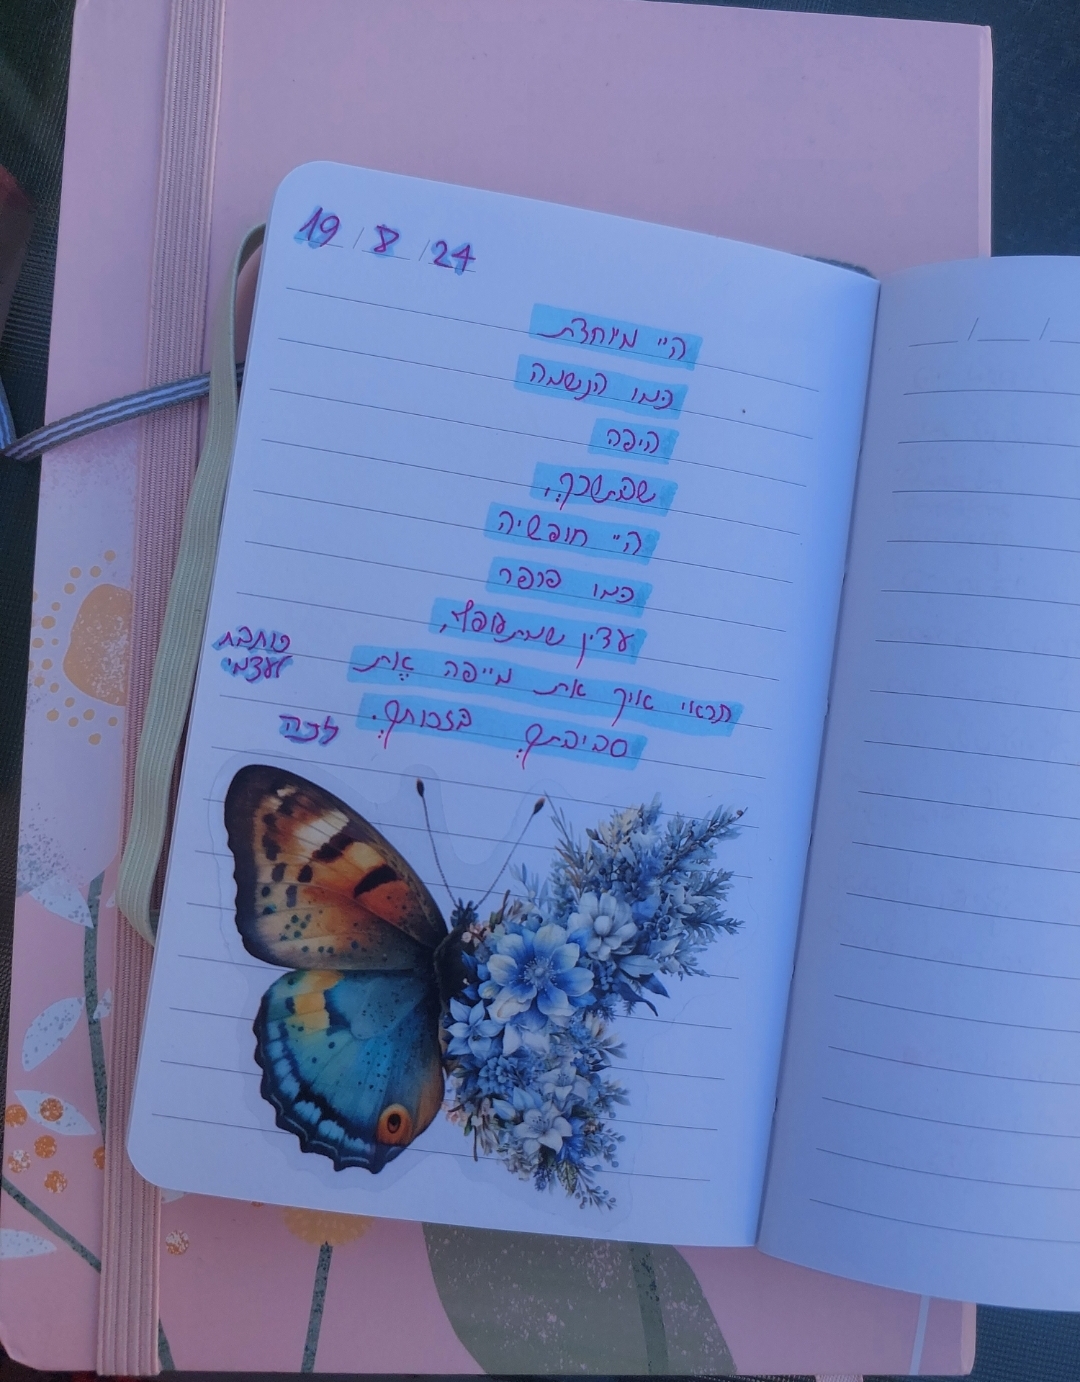 19/8/24
היי מיוחדת
כמו הנשמה
היפה
שבתוכךְ,
היי חופשיה
כמו פרפר
עדין שמתעופף,
תראי איך את מייפה אֶת
סביבתךְ בזכותךְ.
כותבת
לעצמי